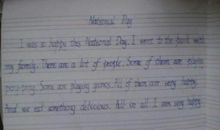 National Day
I was so happy this National Day. I went to the park with
my family. There are a lot of people. Some of them are playing
ping-pong. Some are playing games. All of them are very happy.
And we eat something delicious. All in all I am very happy.